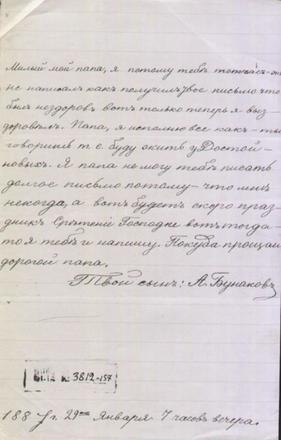 Милый мой папа, я потому тебѣ тотчасъ-же
не написалъ какъ получилъ твое письмо что
былъ нездоровъ вотъ только теперь я выз-
доровѣлъ. Папа, я исполню все какъ-ты
говоришь т. е. буду жить у Достой-
новыхъ. Я папа не могу тебѣ писать
долгое письмо потому-что мнѣ
некогда, а вотъ будетъ скоро праз-
дникъ Срѣтеніе Господне вотъ тогда-
то я тебѣ и напишу. Покуда прощай
дорогой папа.
Твой сынъ: А. Бунаковъ
№ 3812-157
188 г. 29го Января 7 часовъ вечера.